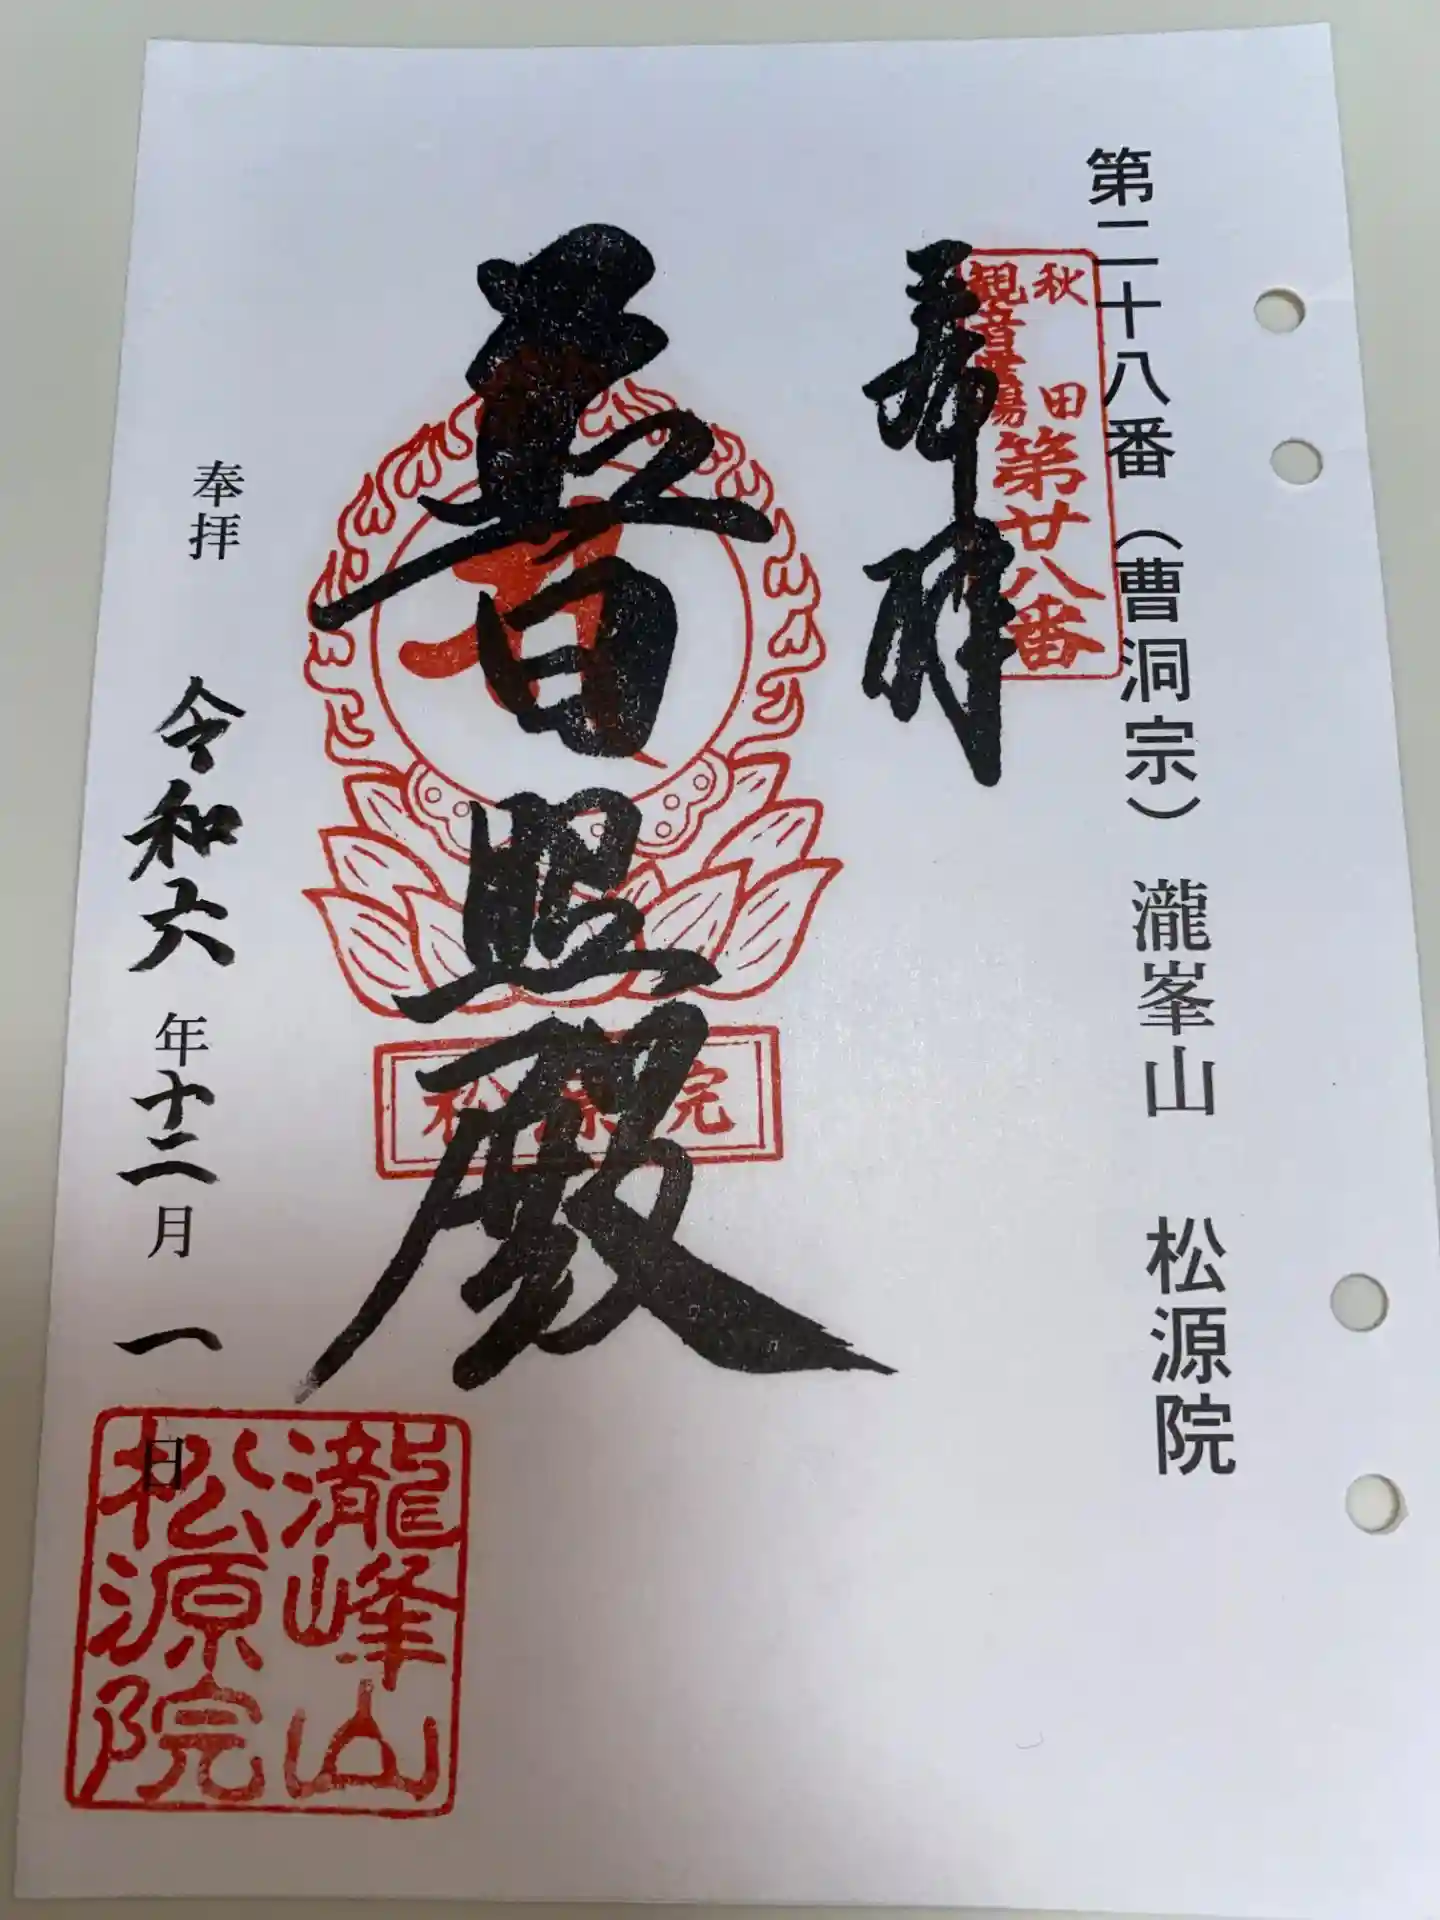 第二十八番（曹洞宗）瀧峯山　松源院
秋田
観音霊場
第廿八番
奉拝
普照殿
松源院
奉拝　令和六年十二月一日
瀧峰山
松源院